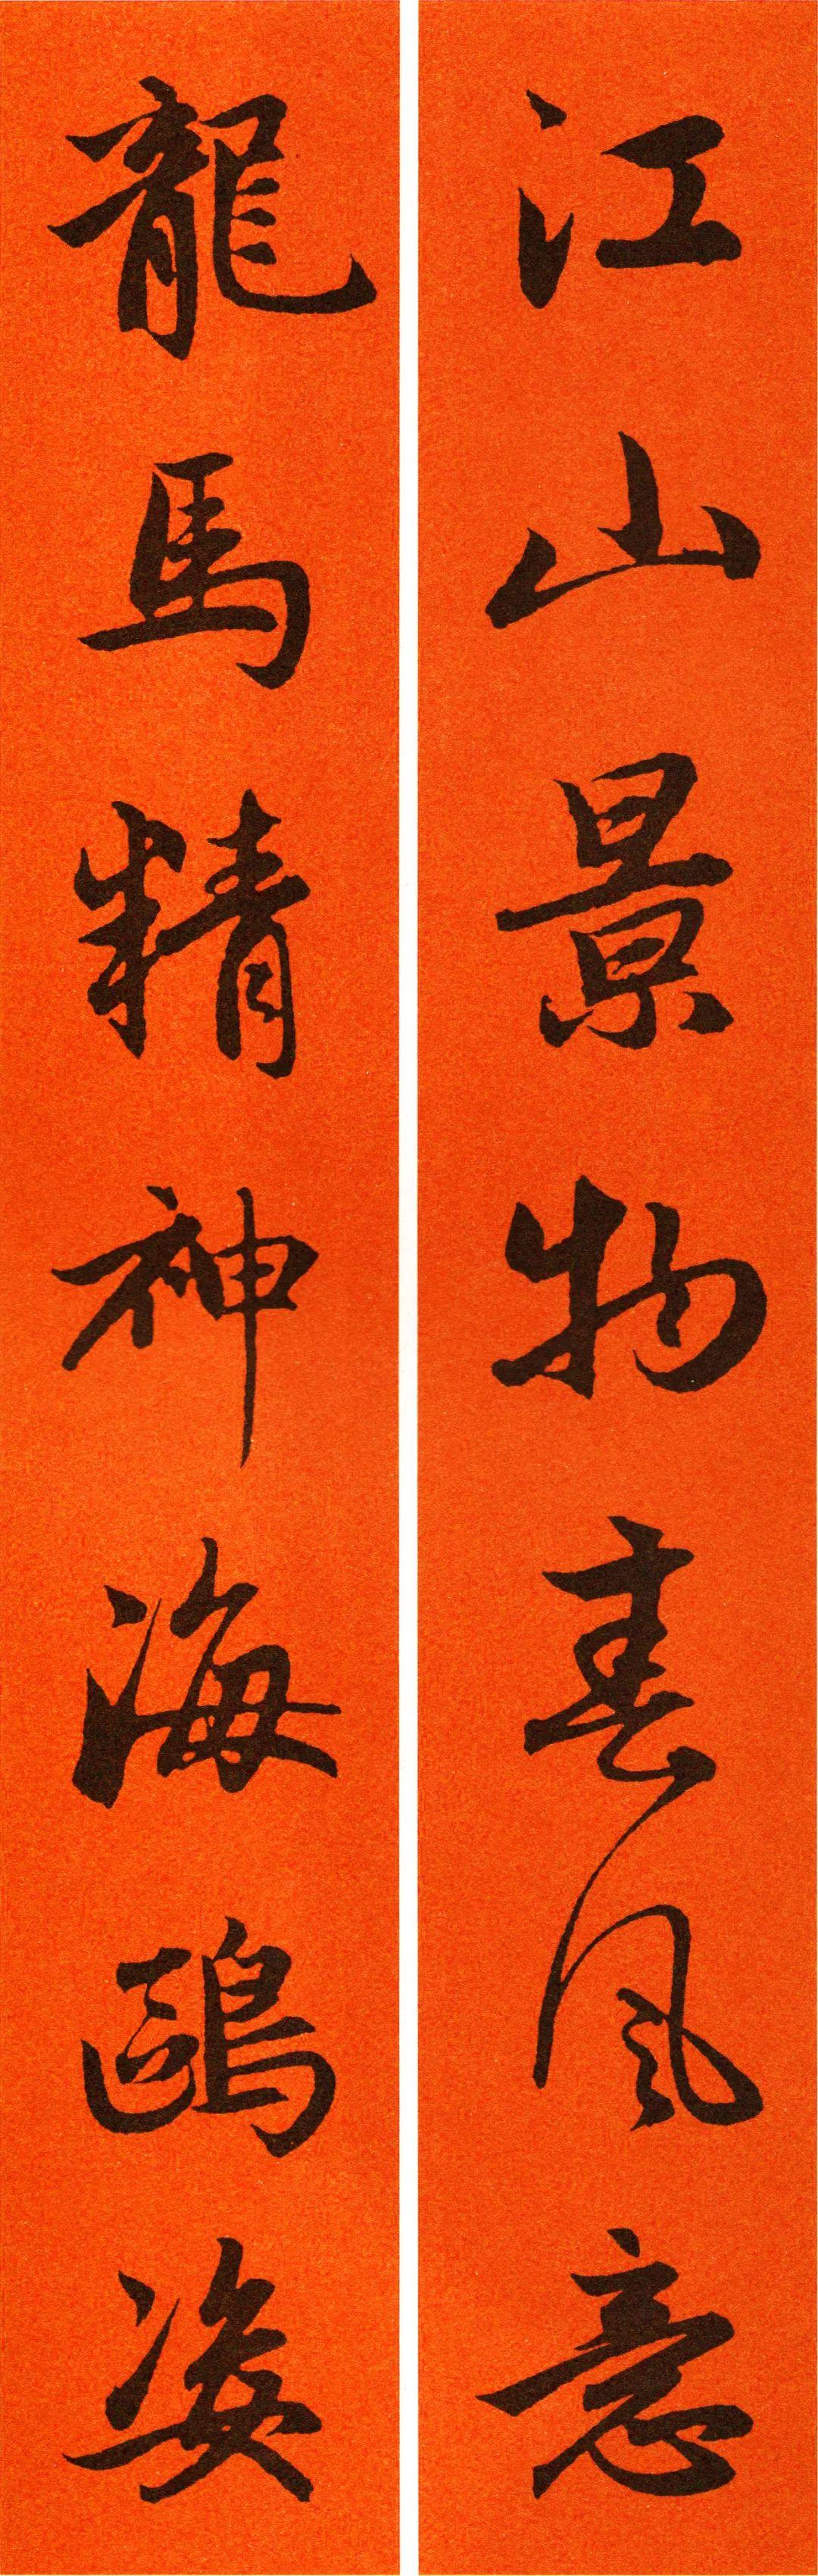 江山景物春風意
龍馬精神海鷗姿